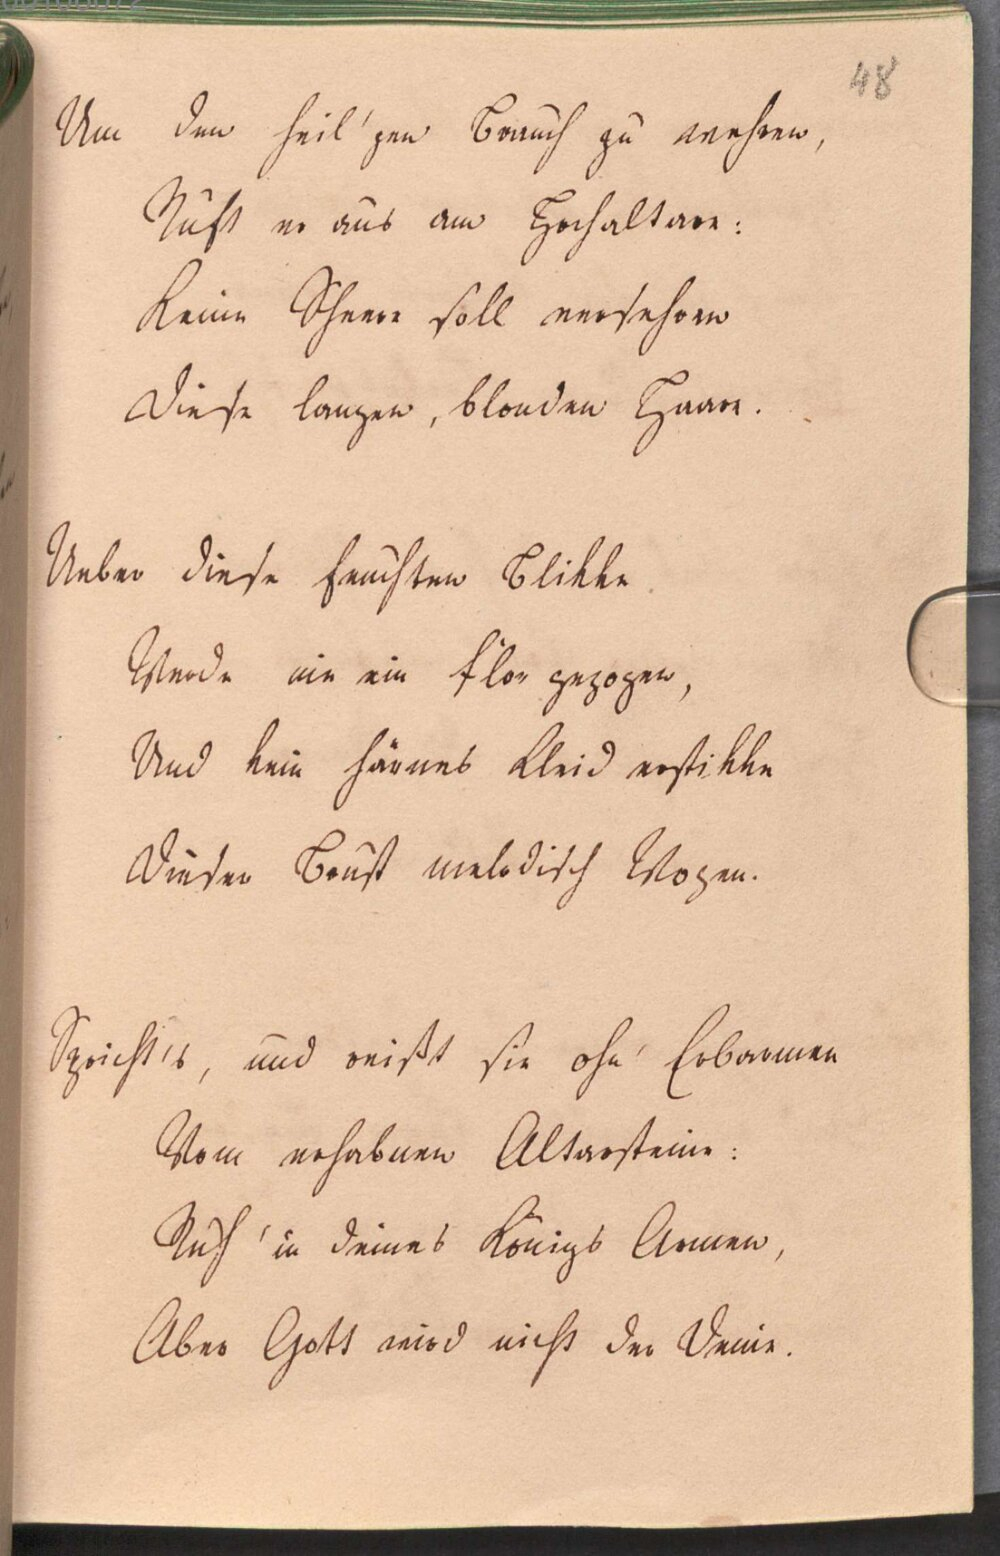 48
Um den heil'gen Brauch zu wehren,
Ruft er aus am Hochaltare:
Keine Scheere soll versehren
Diese langen, blonden Haare.
Ueber diese feuchten Blikke
Werde nie ein Flor gezogen,
Und kein härnes Kleid erstikke
Dieser Brust melodisch Wogen.
Spricht's, und reißt sie ohn' Erbarmen
Vom erhabnen Altarsteine:
Ruh' in deines Königs Armen,
Aber Gott wird nicht der Deine.